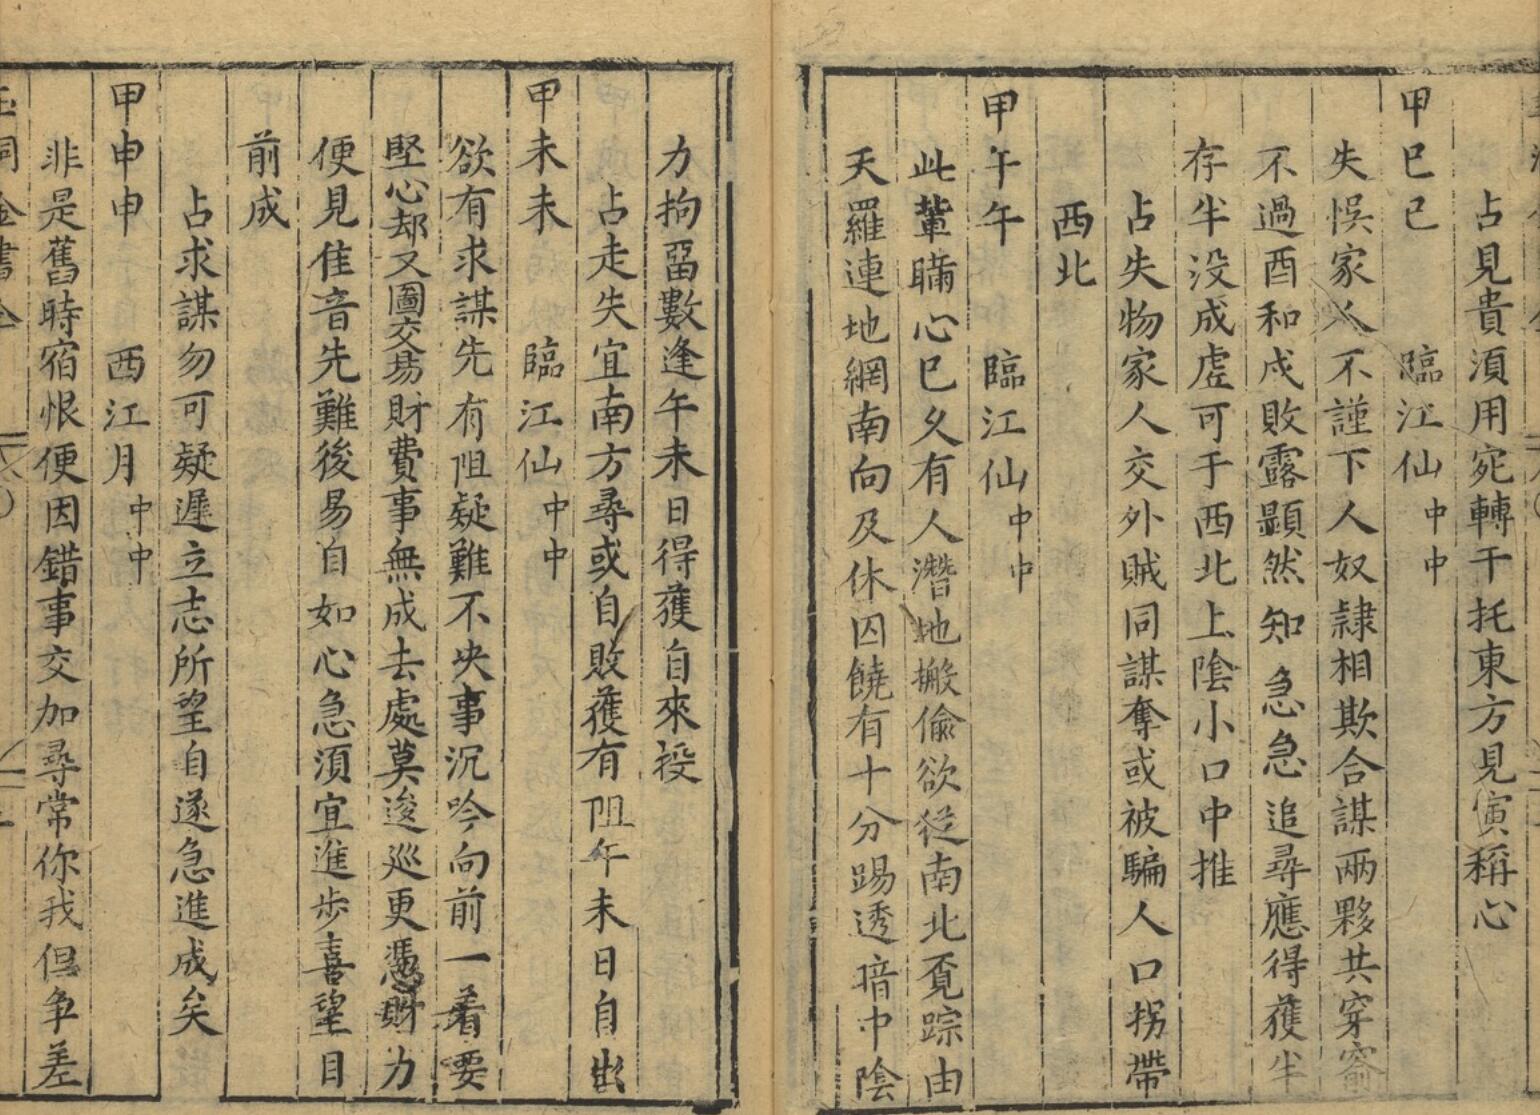 占見貴湏用宛轉干托東方見寅稱心
甲巳巳　臨江仙中中
失悮家人不謹下人奴隷相欺合謀兩夥共穿窬
不過酉和戍敗露顯然知急急追尋應得獲半
存半没成虗可于西北上陰小口中推
占失物家人交外賊同謀奪或被騙人口拐帶
西北
甲午午　臨江仙中中
此軰瞞心巳久有人潛地搬偷欲從南北覔踪由
天羅連地網南向及休囚饒有十分踢透暗中陰
力拘畱數逢午未日得獲自來投
占走失宜南方尋或自敗獲有阻午未日自出
甲未未　臨江仙中中
欲有求謀先有阻疑難不决事沉吟向前一着要
堅心却又圖交易財費事無成去處莫逡巡更憑財力
便見佳音先難後易自如心急湏宜進步喜望目
前成
占求謀勿可疑遲立志所望自遂急進成矣
甲申申　西江月中中
非是舊時宿恨便因錯事交加尋常你我但争差